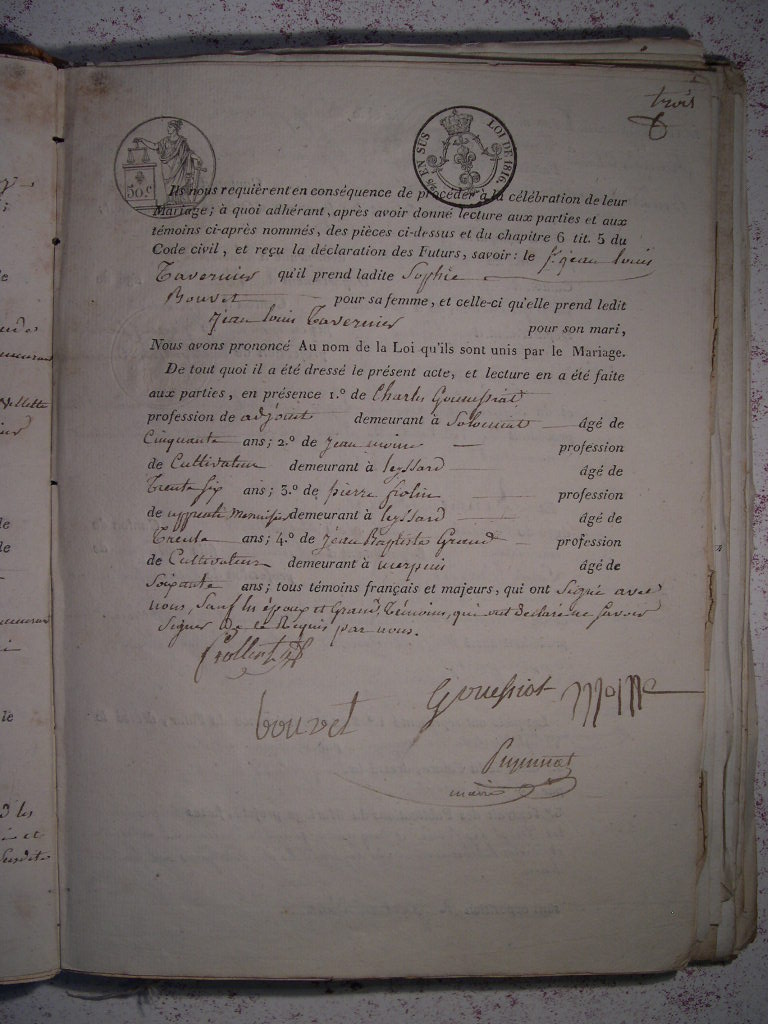 trois
50 c.
25 EN SUS LOI DE 1816.
Ils nous requièrent en conséquence de procéder à la célébration de leur
Mariage; à quoi adhérant, après avoir donné lecture aux parties et aux
témoins ci-après nommés, des pièces ci-dessus et du chapitre 6 tit. 5 du
Code civil, et reçu la déclaration des Futurs, savoir: le Sr. jean Louis
Tavernier qu'il prend ladite Sophie
Bouvet pour sa femme, et celle-ci qu'elle prend ledit
jean Louis Tavernier pour son mari,
Nous avons prononcé Au nom de la Loi qu'ils sont unis par le Mariage.
De tout quoi il a été dressé le présent acte, et lecture en a été faite
aux parties, en présence 1.º de Charles Gouessiat
profession de adjoint demeurant à Solomiat âgé de
Cinquante ans; 2.º de jean moine profession
de Cultivateur demeurant à leyssard âgé de
Trente Six ans; 3.º de pierre profession
de apprenti Menuisier demeurant à leyssard âgé de
Trente ans; 4.º de jean Baptiste Grand profession
de Cultivateur demeurant à merpuis âgé de
Soixante ans; tous témoins français et majeurs, qui ont Signé avec
nous, Sauf les époux et Grand, Témoins, qui ont Déclaré ne Savoir
Signer De ce Requis par nous.
bouvet
Gouessiat Moine
maire